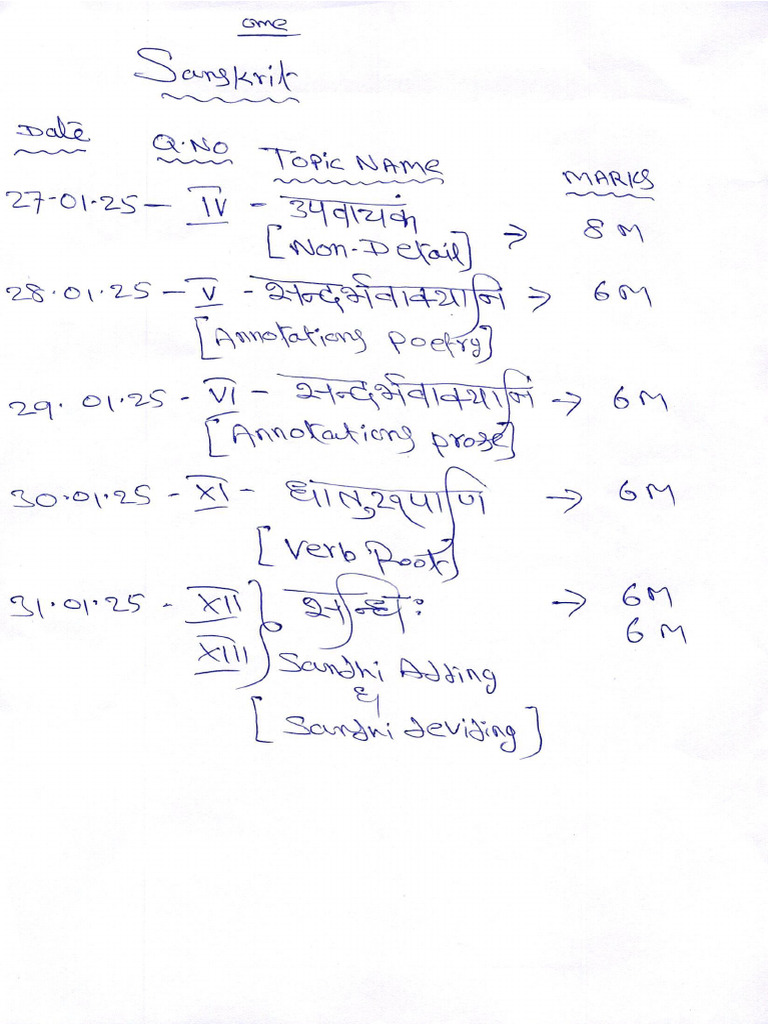 ome
Sanskrit
Date Q.NO TOPIC NAME MARKS
27-01-25 - IV - उपवाचकं
[Non-Detail] → 8M
28.01.25 - V - सन्दर्भवाक्यानि → 6M
[Annotations poetry]
29.01.25 - VI - सन्दर्भवाक्यानि → 6M
[Annotations prose]
30.01.25 - XI - धातुरूपाणि → 6M
[Verb Root]
31.01.25 - XII } सन्धिः → 6M
XIII 6M
Sandhi Adding
&
[Sandhi deviding]